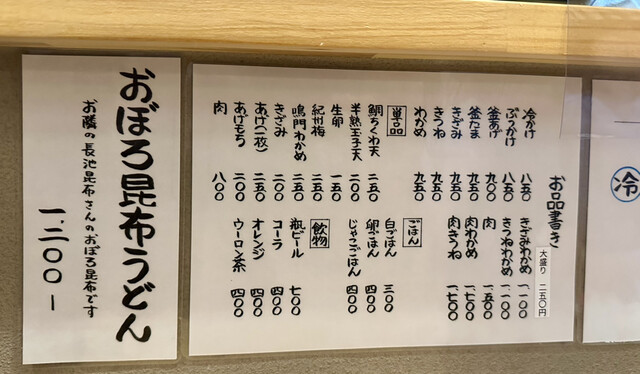 冷
お品書き
大盛り 二五〇円
冷かけ 八五〇
ぶっかけ 八五〇
釜あげ 九〇〇
釜たま 九五〇
きざみ 九五〇
きつね 九五〇
わかめ 九五〇
きざみわかめ 一、一〇〇
きつねわかめ 一、一〇〇
肉 一、五〇〇
肉わかめ 一、七〇〇
肉きつね 一、七〇〇
単品
鯛ちくわ天 二五〇
半熟玉子天
生卵 一五〇
紀州梅 二五〇
鳴門わかめ 二五〇
きざみ 二五〇
あげ(二枚) 二〇〇
あげもち 二〇〇
肉 八〇〇
ごはん
白ごはん 三〇〇
卵ごはん 四〇〇
じゃこごはん 四〇〇
飲物
瓶ビール 七〇〇
コーラ 四〇〇
オレンジ 四〇〇
ウーロン茶 四〇〇
おぼろ昆布うどん
お隣の長池昆布さんのおぼろ昆布です
一、二〇〇ー